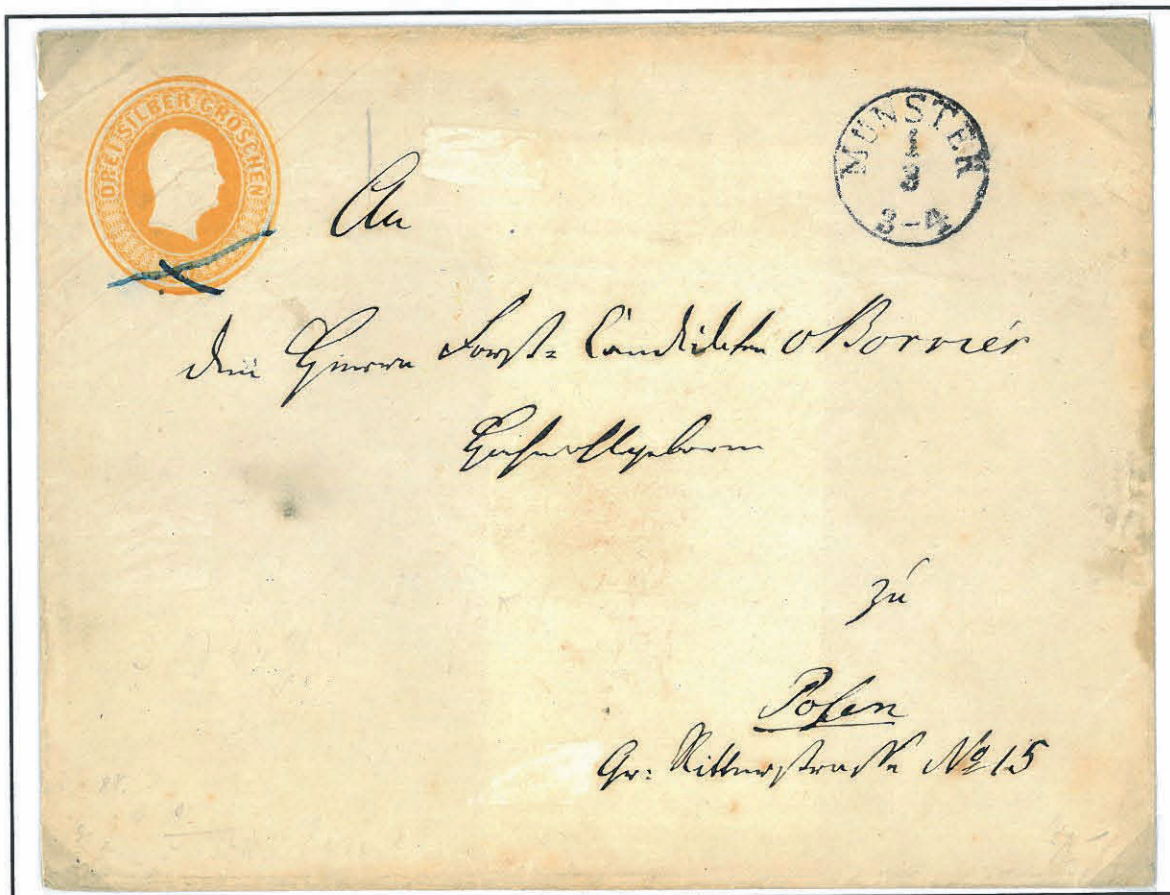 DREI SILBER GROSCHEN
MUNSTER
1
8
3-4
An
den Herrn Forst= Candidaten Borries
Hochwohlgeboren
zu
Posen
Gr: Ritterstrasse No 15